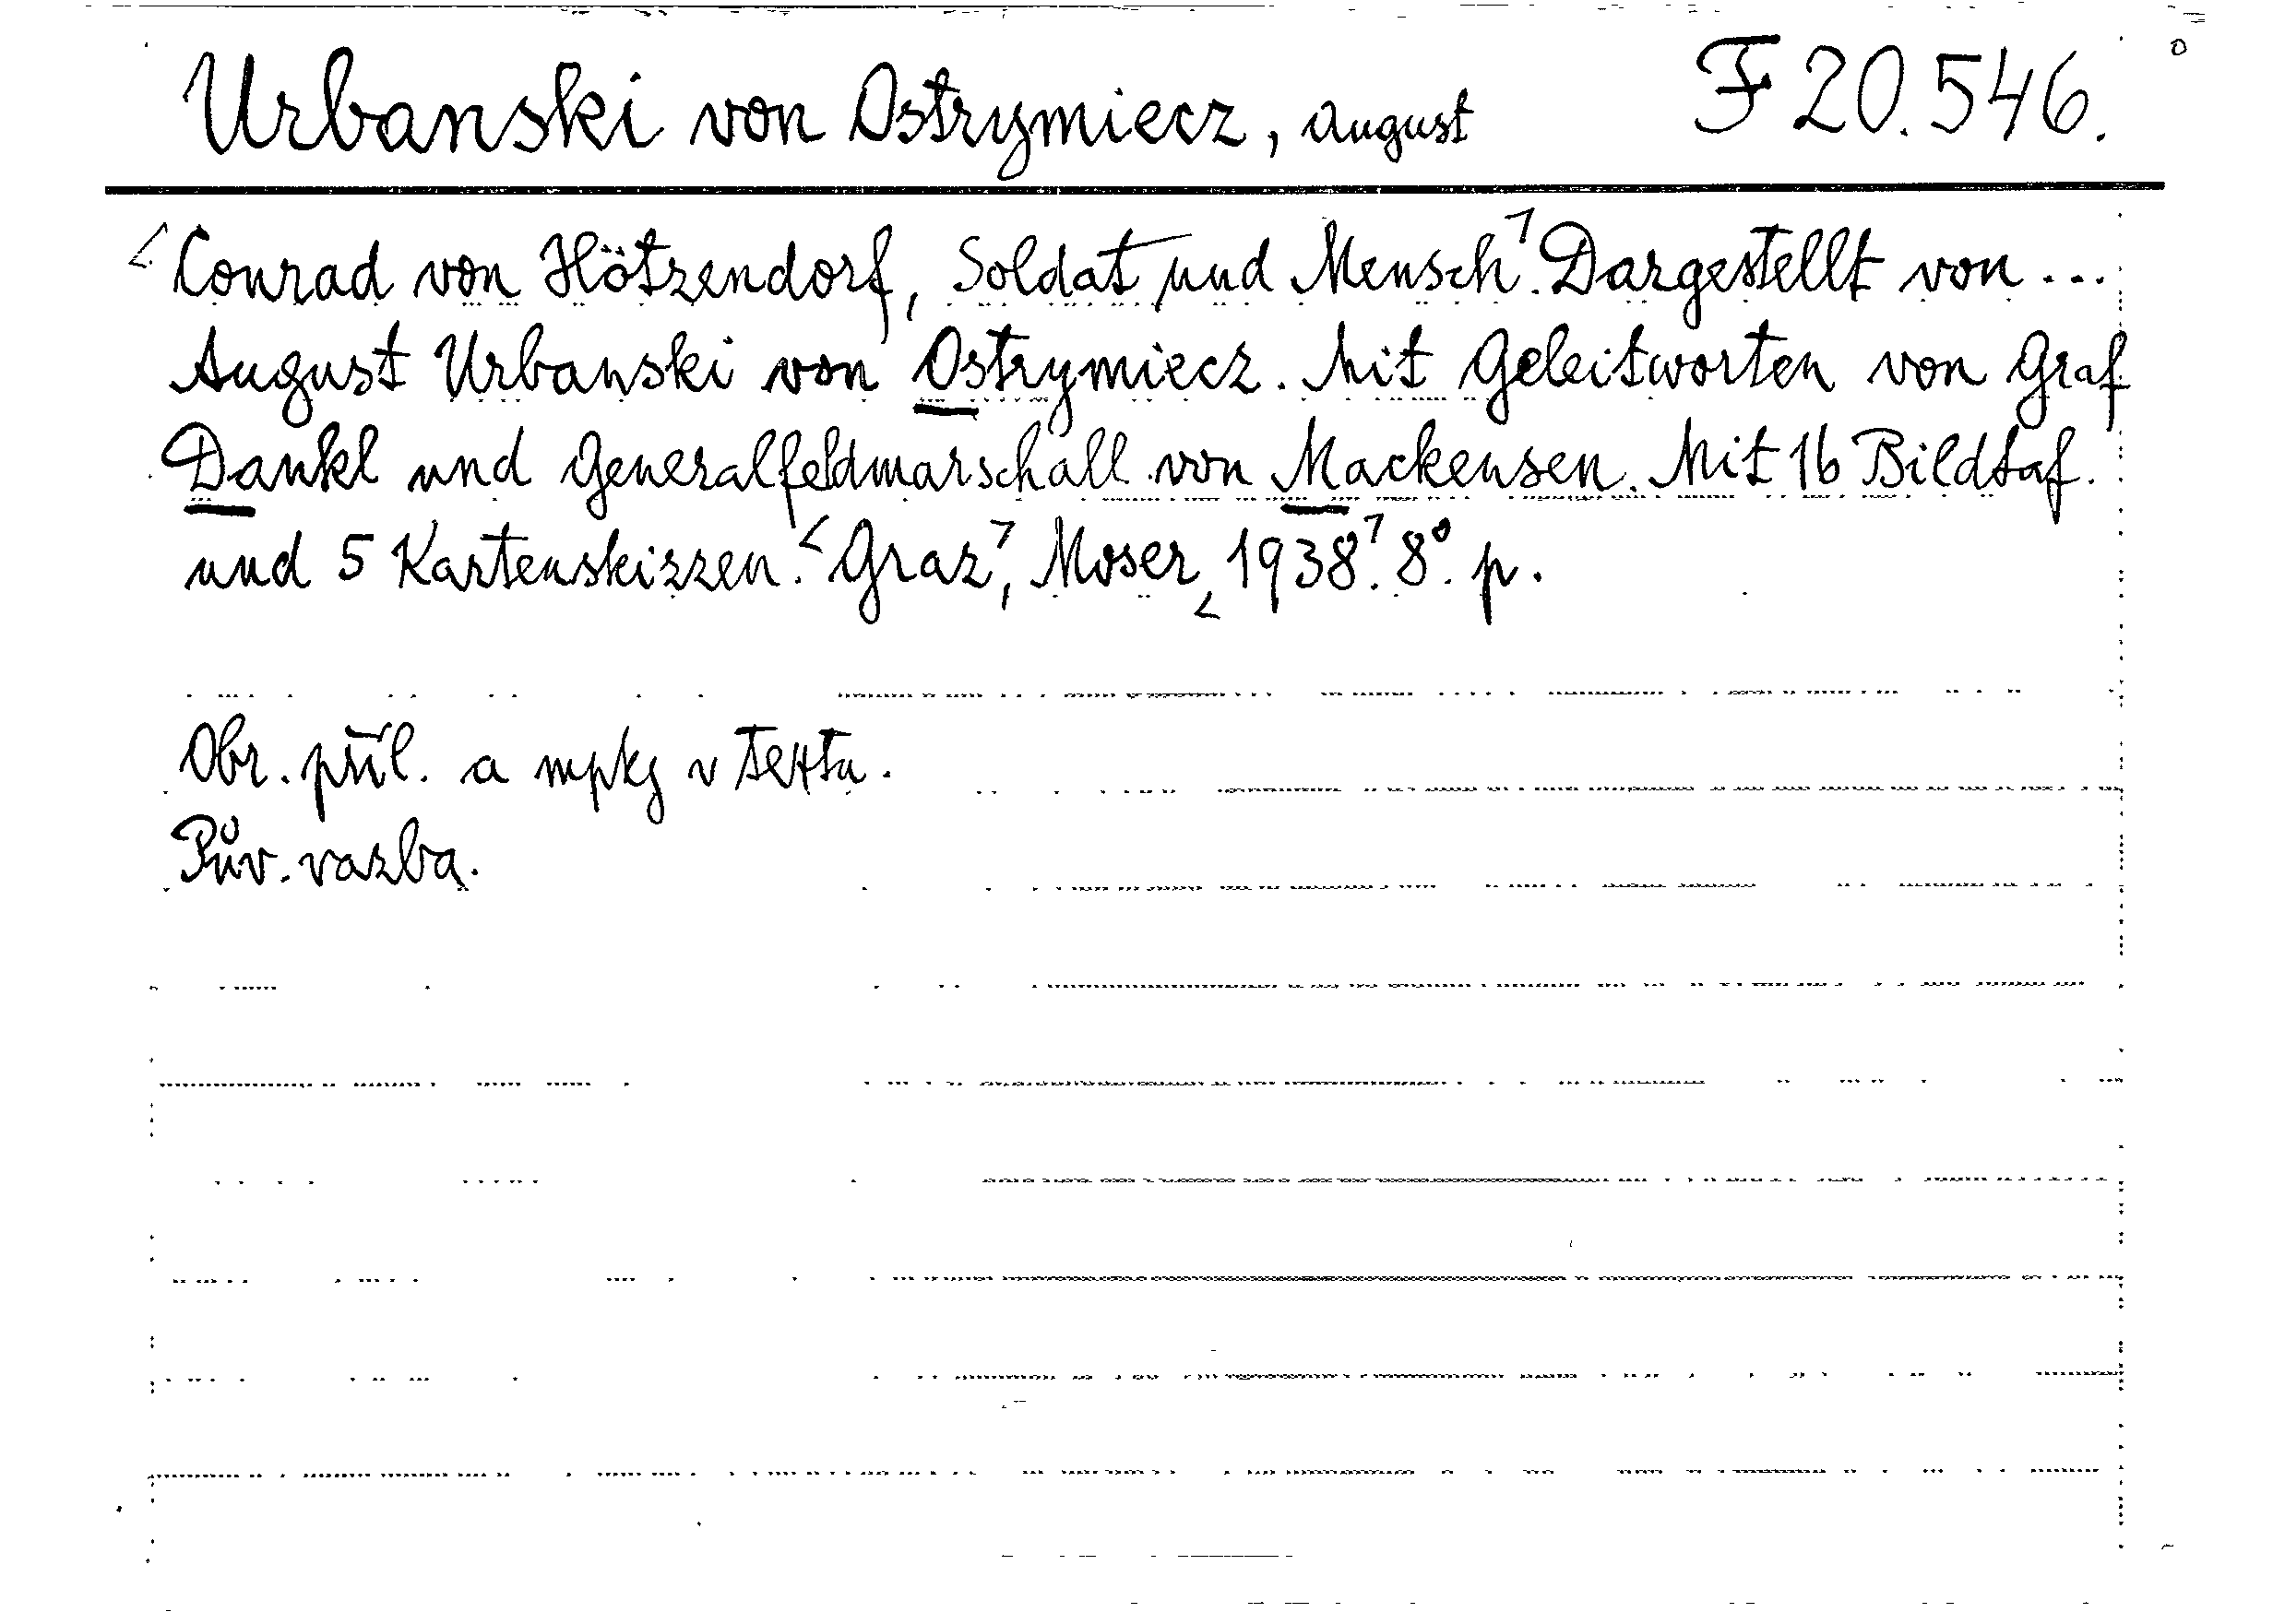 Urbanski von Ostrymiecz, August F 20.546.
<Conrad von Hötzendorf, Soldat und Mensch.> Dargestellt von ...
August Urbanski von Ostrymiecz. Mit Geleitworten von Graf
Dankl und Generalfeldmarschall von Mackensen. Mit 16 Bildtaf.
und 5 Kartenskizzen. <Graz>, Moser, <1938>. 8°. p.
Obr. příl. a mpky v textu.
Pův. vazba.